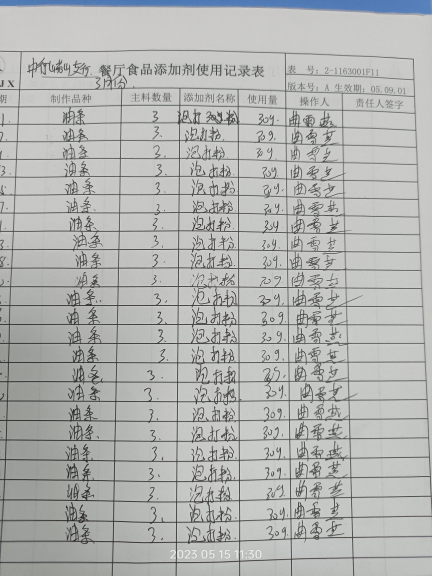 餐厅食品添加剂使用记录表
表 号：2-1163001F11
3月份
JX
版本号：A 生效期：05.09.01
期 制作品种 主料数量 添加剂名称 使用量 操作人 责任人签字
油条 3 泡打粉 30g 曲雪燕
油条 3 泡打粉 30g 曲雪燕
油条 3. 泡打粉 30g 曲雪燕
油条 3. 泡打粉 30g 曲雪燕
油条 3. 泡打粉 30g. 曲雪燕
油条 3. 泡打粉. 30g. 曲雪燕
油条 3. 泡打粉 30g 曲雪燕
油条 3. 泡打粉 30g. 曲雪燕
油条 3. 泡打粉. 30g. 曲雪燕
油条 3. 泡打粉 30g. 曲雪燕
油条. 3. 泡打粉 30g. 曲雪燕
油条 3. 泡打粉 30g. 曲雪燕
油条 3. 泡打粉 30g. 曲雪燕
油条 3. 泡打粉. 30g. 曲雪燕
油条 3. 泡打粉 30g. 曲雪燕
油条. 3. 泡打粉. 30g. 曲雪燕
油条 3. 泡打粉 30g. 曲雪燕
油条. 3. 泡打粉. 30g. 曲雪燕
油条 3. 泡打粉 30g. 曲雪燕
油条 3. 泡打粉. 30g. 曲雪燕
油条 3. 泡打粉 30g. 曲雪燕
油条 3. 泡打粉. 30g. 曲雪燕
油条 3. 泡打粉 30g. 曲雪燕
2023 05 15 11:30